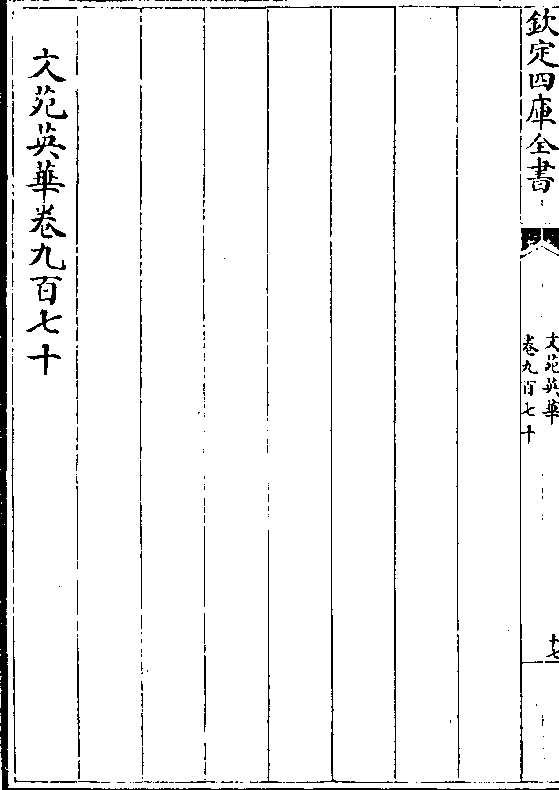 欽定四庫全書
文苑英華
卷九百七十
十七
文苑英華卷九百七十